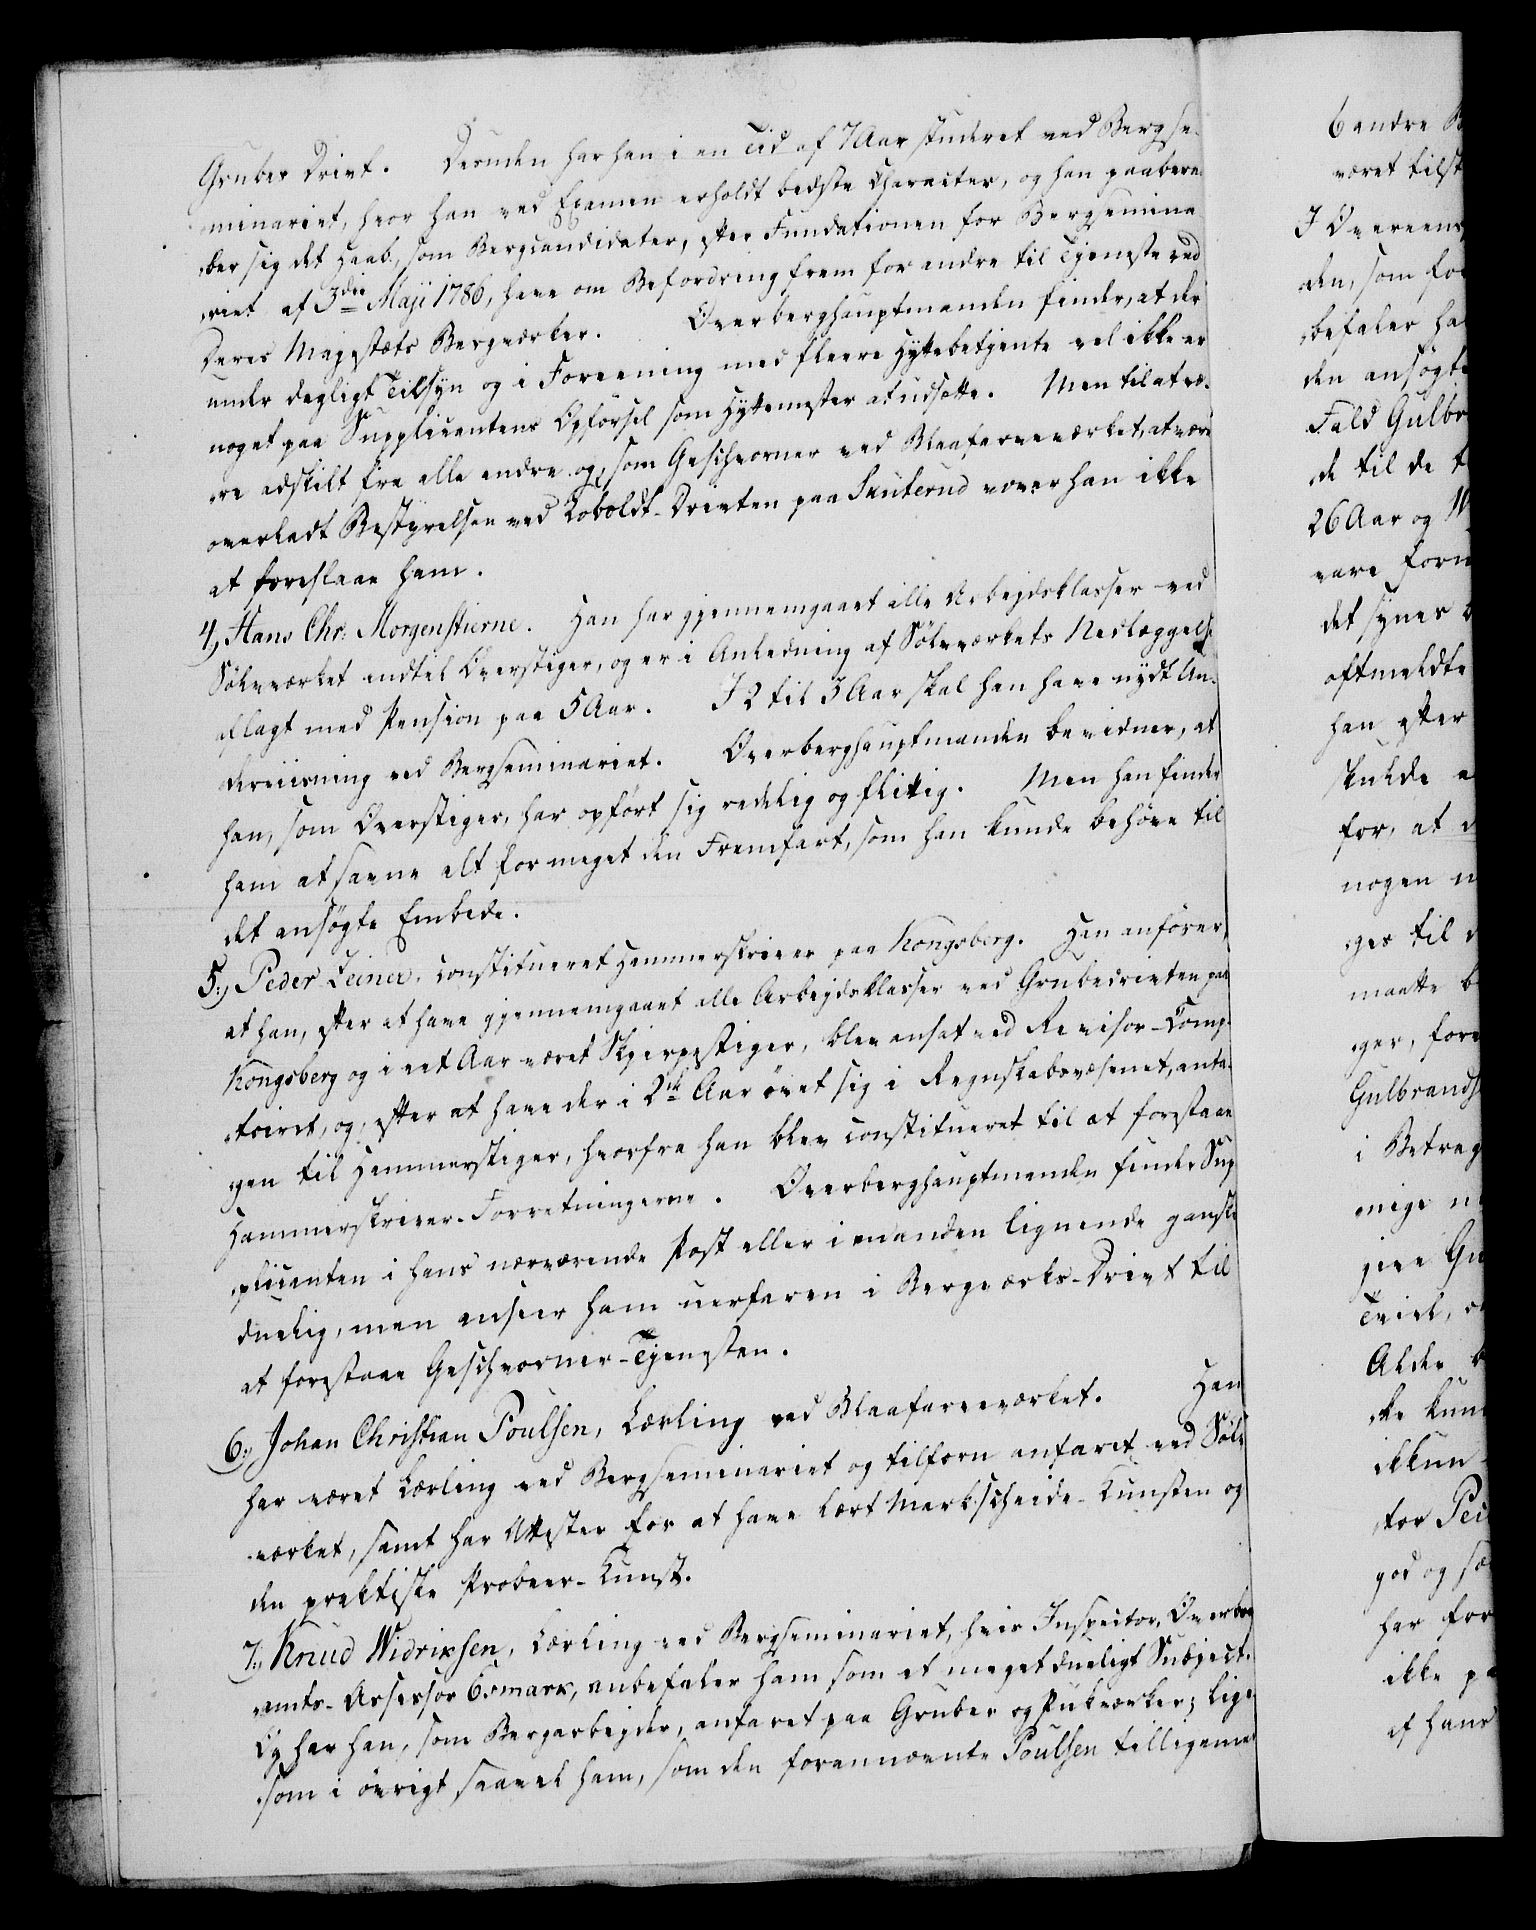 Grubes Drivt. Desuden har han i en Tid af 7 Aar studeret ved Bergse-
minariet, hvor han ved Examen erholdt bedste Character, og han paabera-
ber sig det Haab, som Bergcandidater, efter Fundationen for Bergsemina-
riet af 3die Maji 1786, have om Befordring frem for andre til Tjeneste ved
Deres Majestæts Bergværker. Overberghauptmanden finder, at der
under dagligt Tilsyn og i Foreening med fleere Hyttebetjente vel ikke er
noget paa Supplicantens Opførsel som Hyttemester at udsette. Men til at væ-
re adskilt fra alle andre og, som Geschworner ved Blaafarveværket, at være
overladt Bestyrelsen ved Kobolt-Drivten paa Skuterud vover han ikke
at foreslaae ham.
4, Hans Chr: Morgenstierne. Han har gjennemgaaet alle Arbejdsklasser ved
Sölvværket indtil Overstiger, og er i Anledning af Sölvværkets Nedlæggelse
aflagt med Pension paa 5 Aar. I 2 til 3 Aar skal han have nydt Un-
derviisning ved Bergseminariet. Overberghauptmanden bevidner, at
han, som Overstiger, har opført sig redelig og flittig. Men han finder
ham at savne alt for meget den Fremfart, som han kunde behöve til
det ansögte Embede.
5:, Peder Zeiner, constitueret Hammerskriver paa Kongsberg. Han anförer,
at han, efter at have gjennemgaaet alle Arbejdsklasser ved Grubedrivten paa
Kongsberg og i eet Aar været Skjerpestiger, blev ansat ved Revisor-Comp-
toiret, og, efter at have der i 2de Aar övet sig i Regnskabsvæsenet, anta-
gen til Hammerstiger, hvorfra han blev constitueret til at forestaae
Hammerskriver-Forretningerne. Overberghauptmanden finder Sup-
plicanten i hans nærværende Post eller i en anden lignende ganske
duelig, men anseer ham uerfaren i Bergværks-Drivt til
at forestaae Geschworner-Tjenesten.
6:, Johan Christian Poulsen, Lærling ved Blaafarveværket. Han
har været Lærling ved Bergseminariet og tilforn anfaret ved Sölv-
værket, samt har Attester for at have lært Markscheide-Kunsten og
den praktiske Probeer-Kunst.
7:, Knud Widrixsen, Lærling ved Bergseminariet, hvis Inspector, Overberg-
amts-Assessor Esmark, anbefaler ham som et meget dueligt Subject.
Og har han, som Bergarbejder, anfaret paa Gruber og Pukværker; lige-
som i övrigt saavel ham, som den forannævnte Poulsen tilligemed
6 andre
været tilst
I Overeens
den, som for
befaler ha
den ansøgte
Fald Gulbr
de til de t
26 Aar og
være forn
det synes
oftmeldte
han efter
skulde
for, at
nogen
ges til
maatte
ger, fore
Gulbrands
i Betrag
mige
give Gu
Tvivl,
Alder
ske kun
ikkun
tor Pei
god og sæ
har for
ikke pa
af hans